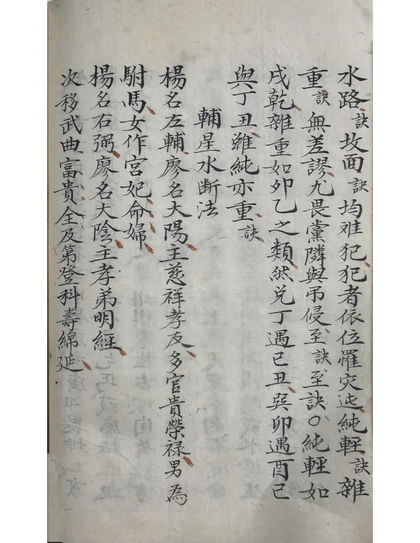 水路訣坟面訣均难犯犯者依位罹灾迍純輕訣雜
重訣無差謬尤畏黨隣與吊侵至訣至訣○純輕如
戌乾雜重如卯乙之類然兑丁遇己丑癸卯遇酉己
與丁丑雖純亦重訣
輔星水断法
楊名左輔廖名大陽主慈祥孝友多官貴榮禄男為
駙馬女作宮妃命婦
楊名右弼廖名大陰主孝弟明經
次移武曲富貴全及第登科壽綿延